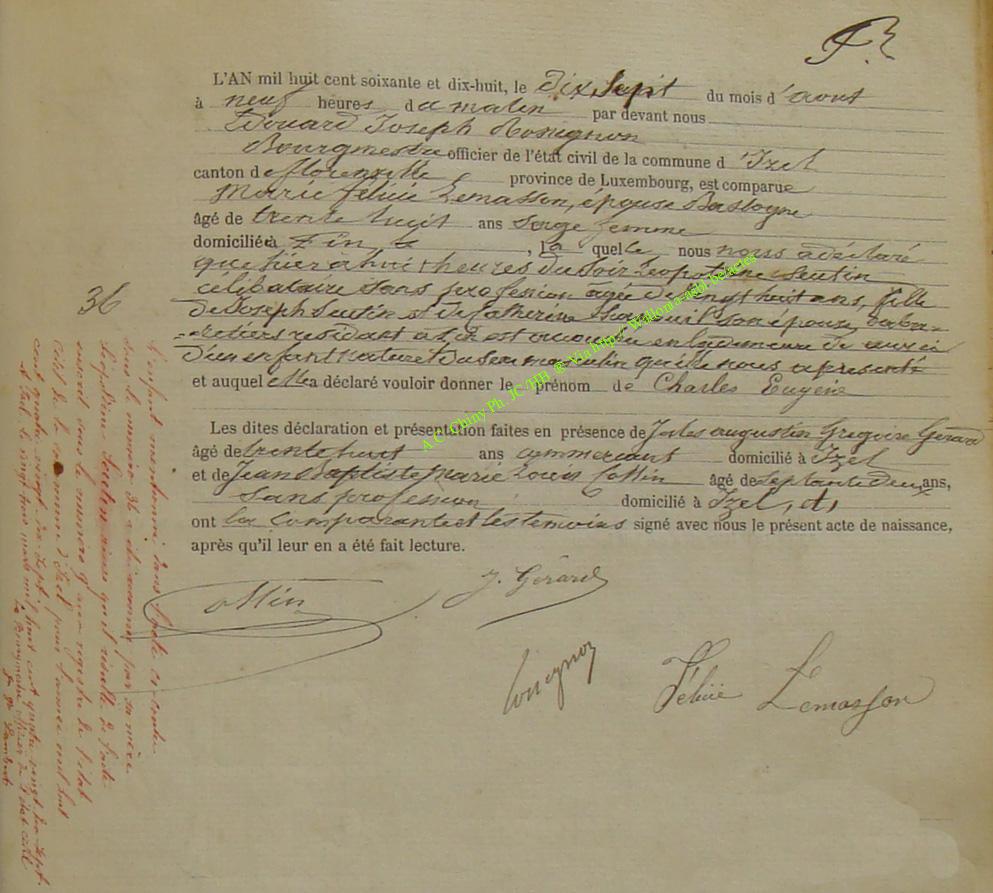 L'AN mil huit cent soixante et dix-huit, le Dix Sept du mois d'aout
à neuf heures du matin par devant nous
Edouard Joseph Rossignon
Bourgmestre officier de l'état civil de la commune d'Izel
canton de florenville province de Luxembourg, est comparue
Marie félicie Lemasson, épouse Bastogne
âgé de trente huit ans Sage femme
domiciliée à , la quelle nous nous a déclaré
que hier à huit heures du Soir Léopoldine Seutin
célibataire sans profession âgée de vingt huit ans, fille
de Joseph Seutin et de Catherine son épouse, caba=
=retiers résidant à est accouchée en la demeure de ceux ci
d'un enfant naturel du sexe masculin qu'elle nous a présenté
et auquel elle a déclaré vouloir donner le prénom de Charles Eugène
Les dites déclaration et présentation faites en présence de Jules augustin Grégoire Gérard
âgé de trente huit ans commercant domicilié à Izel
et de Jean Baptiste Marie Louis Collin âgé de septante deux ans,
Sans profession domicilié à Izel, et,
ont la comparante et les temoins signé avec nous le présent acte de naissance,
après qu'il leur en a été fait lecture.
Collin
J. Gérard
Rossignon
Félicie Lemasson
36
L'enfant mentionné dans l'acte ci-contre
sous le numéro 36 a été reconnu par sa mère
Léopoldine Seutin ainsi qu'il résulte de l'acte
inscrit sous le numéro aux registres de l'état
civil de la commune d'Izel pour l'année mil huit
cent quatre vingt dix-sept.
Izel le vingt trois mars mil huit cent quatre vingt dix-sept.
Le Bourgmestre officier de l'état civil
A C -Chiny Ph. JC -HB @ Via http:// Wallonia-asbl.be/actes